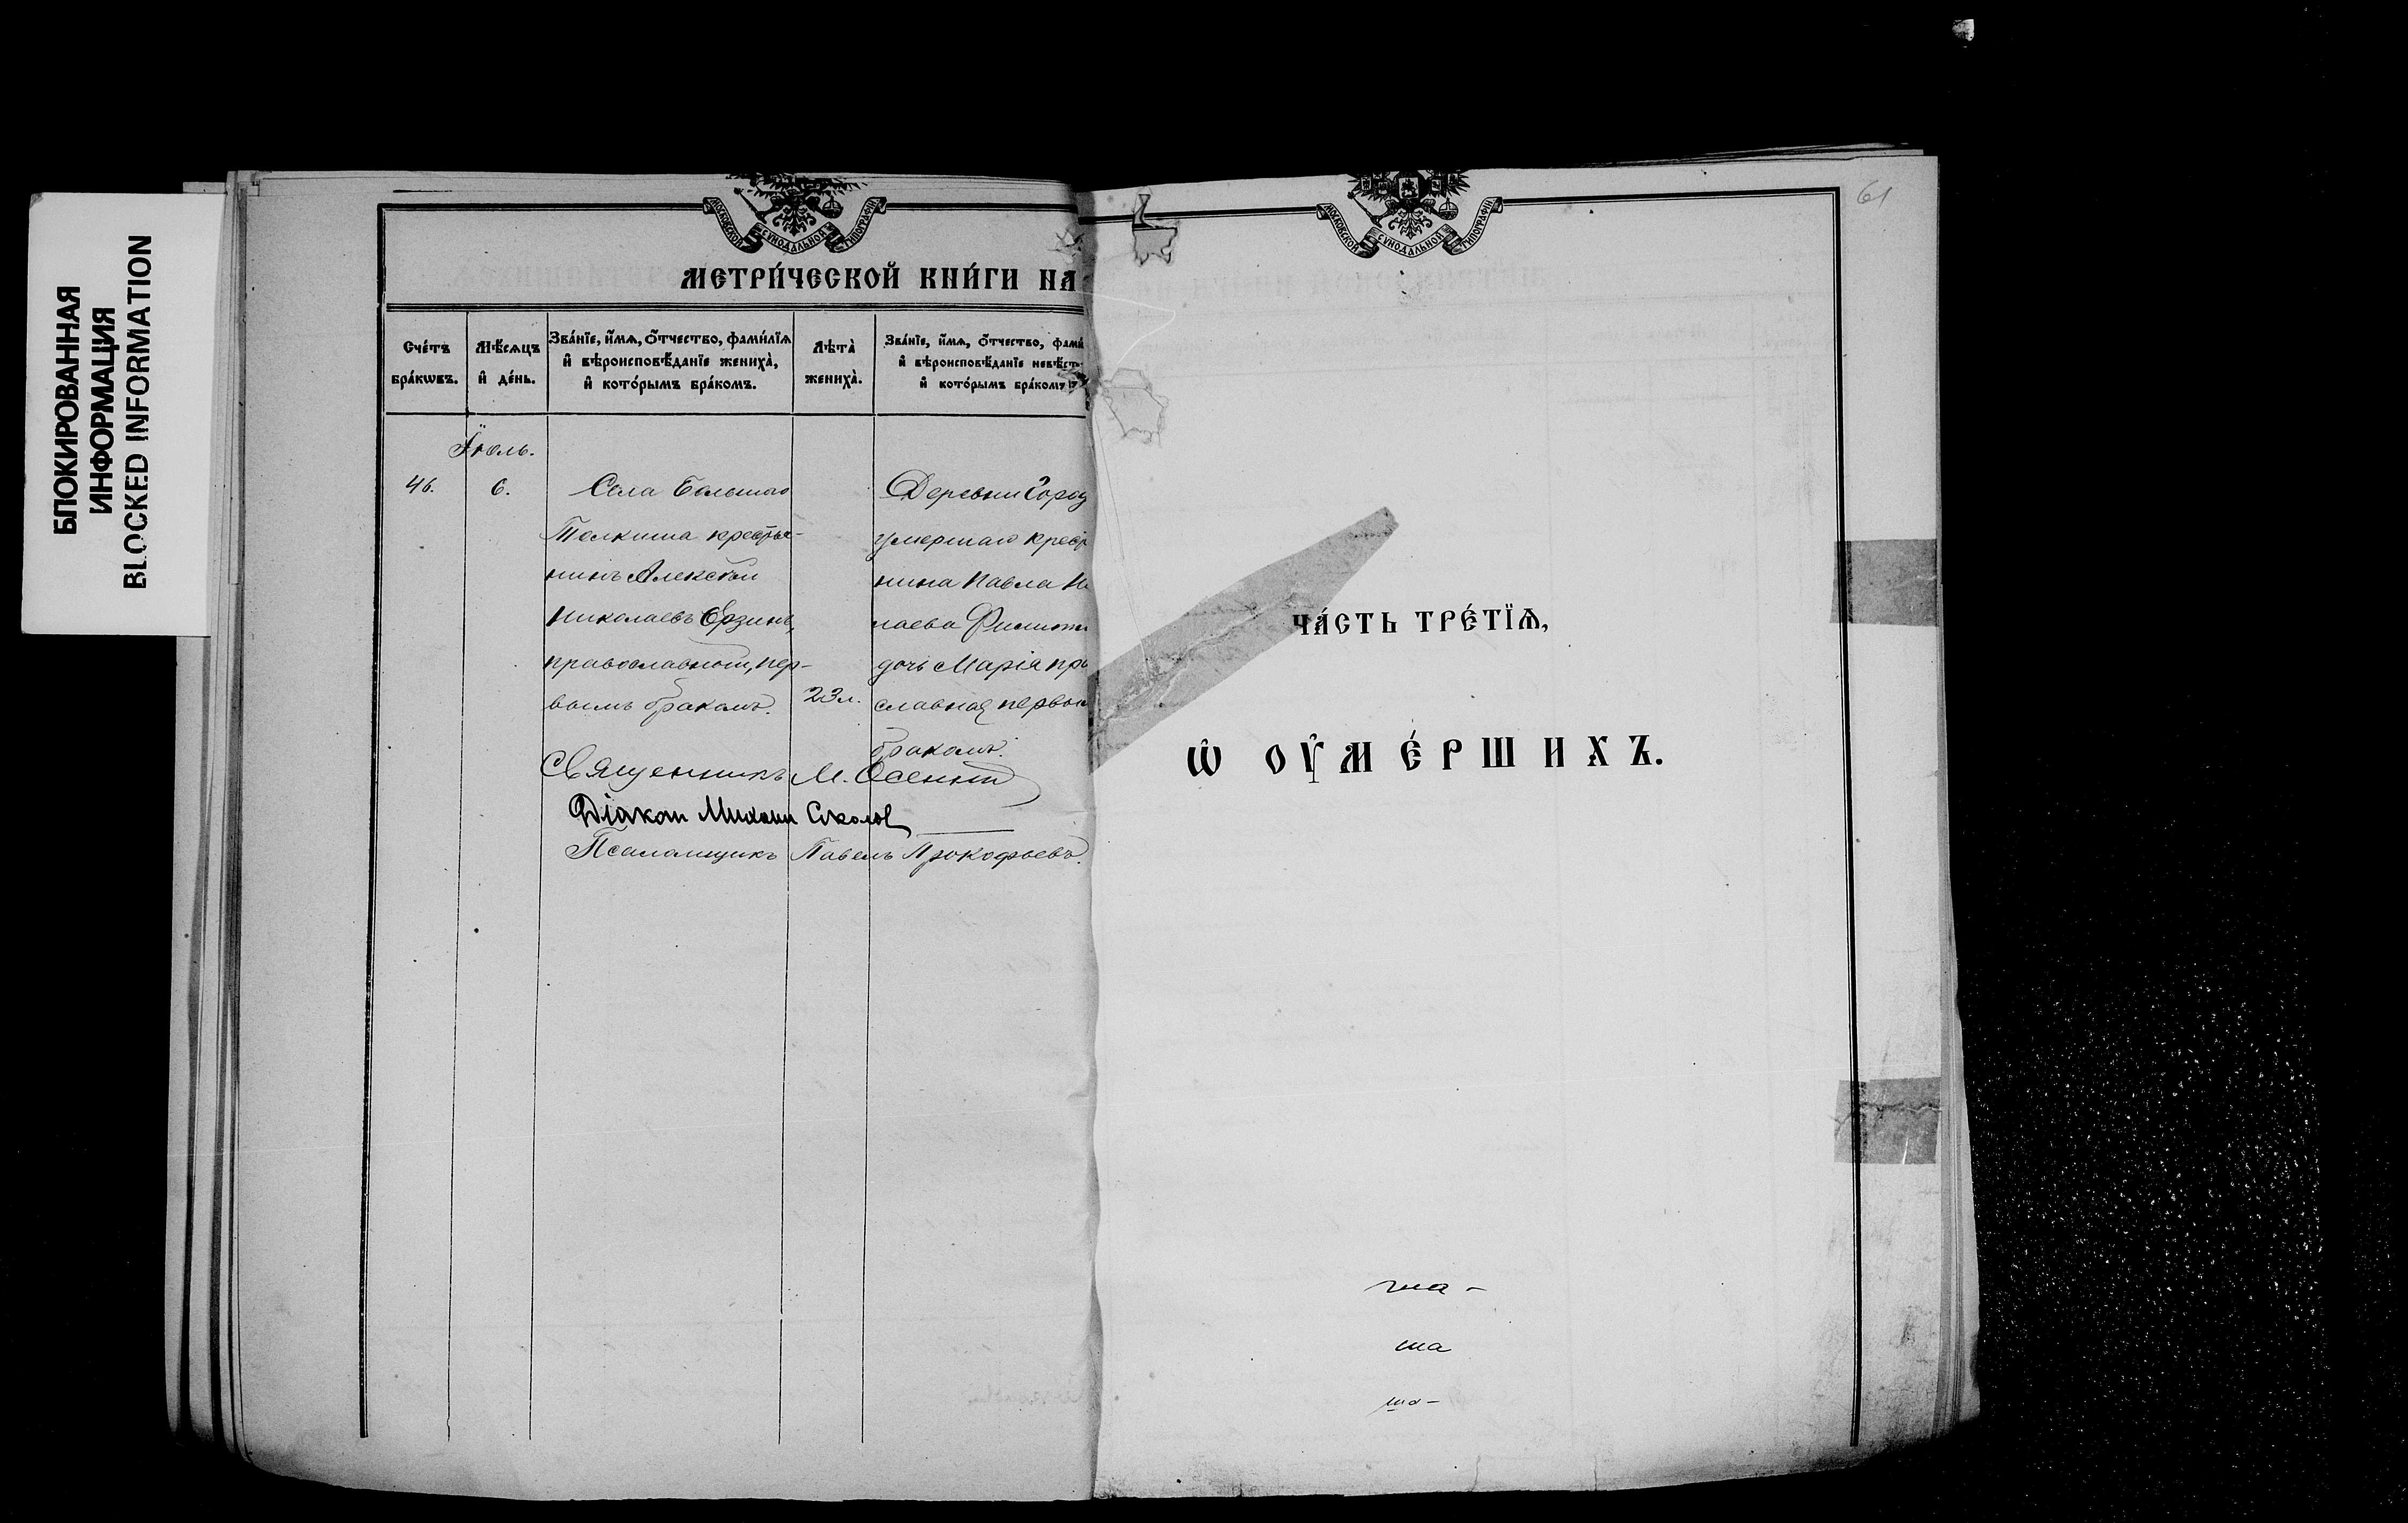 БЛОКИРОВАННАЯ
ИНФОРМАЦИЯ
BLOCKED INFORMATION
МОСКОВСКОЙ СѴНОДАЛЬНОЙ ТИПОГРАФІИ
МЕТРИ́ЧЕСКОЙ КНИ́ГИ НА
Сче́тъ бра́кѡвъ.
Мѣ́сѧцъ и҆ де́нь.
Зва́нїе, и҆́мѧ, ѻ҆́тчество, фами́лїѧ и҆ вѣроисповѣ́данїе жениха̀, и҆ кото́рымъ бра́комъ.
Лѣта̀ жениха̀.
Зва́нїе, и҆́мѧ, ѻ҆́тчество, фами и҆ вѣроисповѣ́данїе невѣ́ст и҆ кото́рымъ бра́комъ
Іюль.
46.
6.
Села Большаго
Толкиша крестья-
нинъ Алексѣй
Николаевъ Ерзинъ,
православный, пер-
вымъ бракомъ.
23 л.
Деревни Город
умершаго крест
нина Павла Ни
лаева Филип
дочь Марія пра
славная первым
бракомъ.
Священникъ М. Осенній
Діакон Михаил Соколов
Псаломщикъ Павелъ Прокофьевъ.
61
МОСКОВСКОЙ СѴНОДАЛЬНОЙ ТИПОГРАФІИ
ЧА́СТЬ ТРЕ́ТЇѦ,
Ѡ҆ ОУ҆МЕ́РШИХЪ.
ша -
ша
ша -